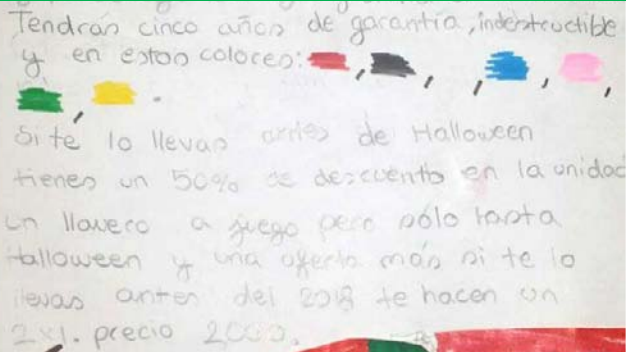 Tendrás cinco años de garantía, indestructible
y en estos colores: , , , , ,
, .
Si te lo llevas antes de Halloween
tienes un 50% de descuento en la unidad
un llavero a juego pero sólo hasta
Halloween y una oferta más si te lo
llevas antes del 2018 te hacen un
2x1. precio 2000.